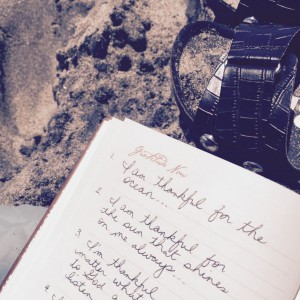 Gratitude Now
1. I am thankful for the
ocean...
2. I am thankful for
the sun that shines
on me always...
3. I'm thankful
matter what
to God a
listen
4.